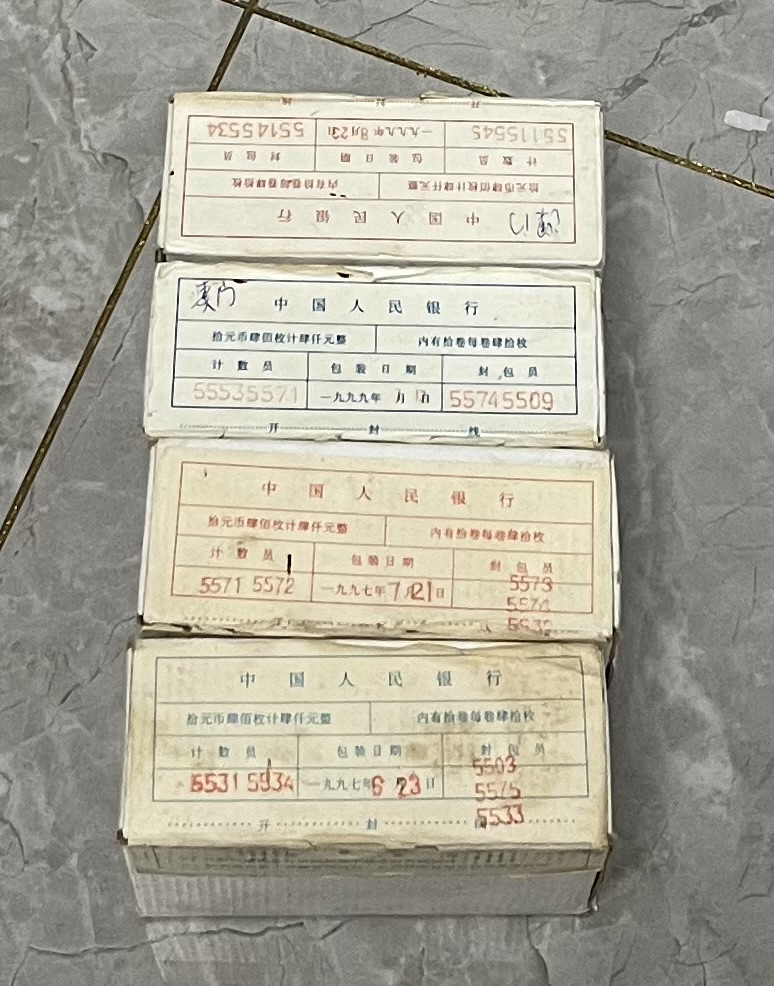 澳门 中国人民银行
拾元币肆佰枚计肆仟元整 内有拾卷每卷肆拾枚
计数员 包装日期 封包员
55115545 一九九九年8月23日 55145534
开封线
澳门 中国人民银行
拾元币肆佰枚计肆仟元整 内有拾卷每卷肆拾枚
计数员 包装日期 封包员
55535571 一九九九年 月 日 55745509
开封线
中国人民银行
拾元币肆佰枚计肆仟元整 内有拾卷每卷肆拾枚
计数员 包装日期 封包员
5571 5572 一九九七年7月21日 5573
5574
中国人民银行
拾元币肆佰枚计肆仟元整 内有拾卷每卷肆拾枚
计数员 包装日期 封包员
5531 5534 一九九七年6月23日 5503
5575
5533
开封